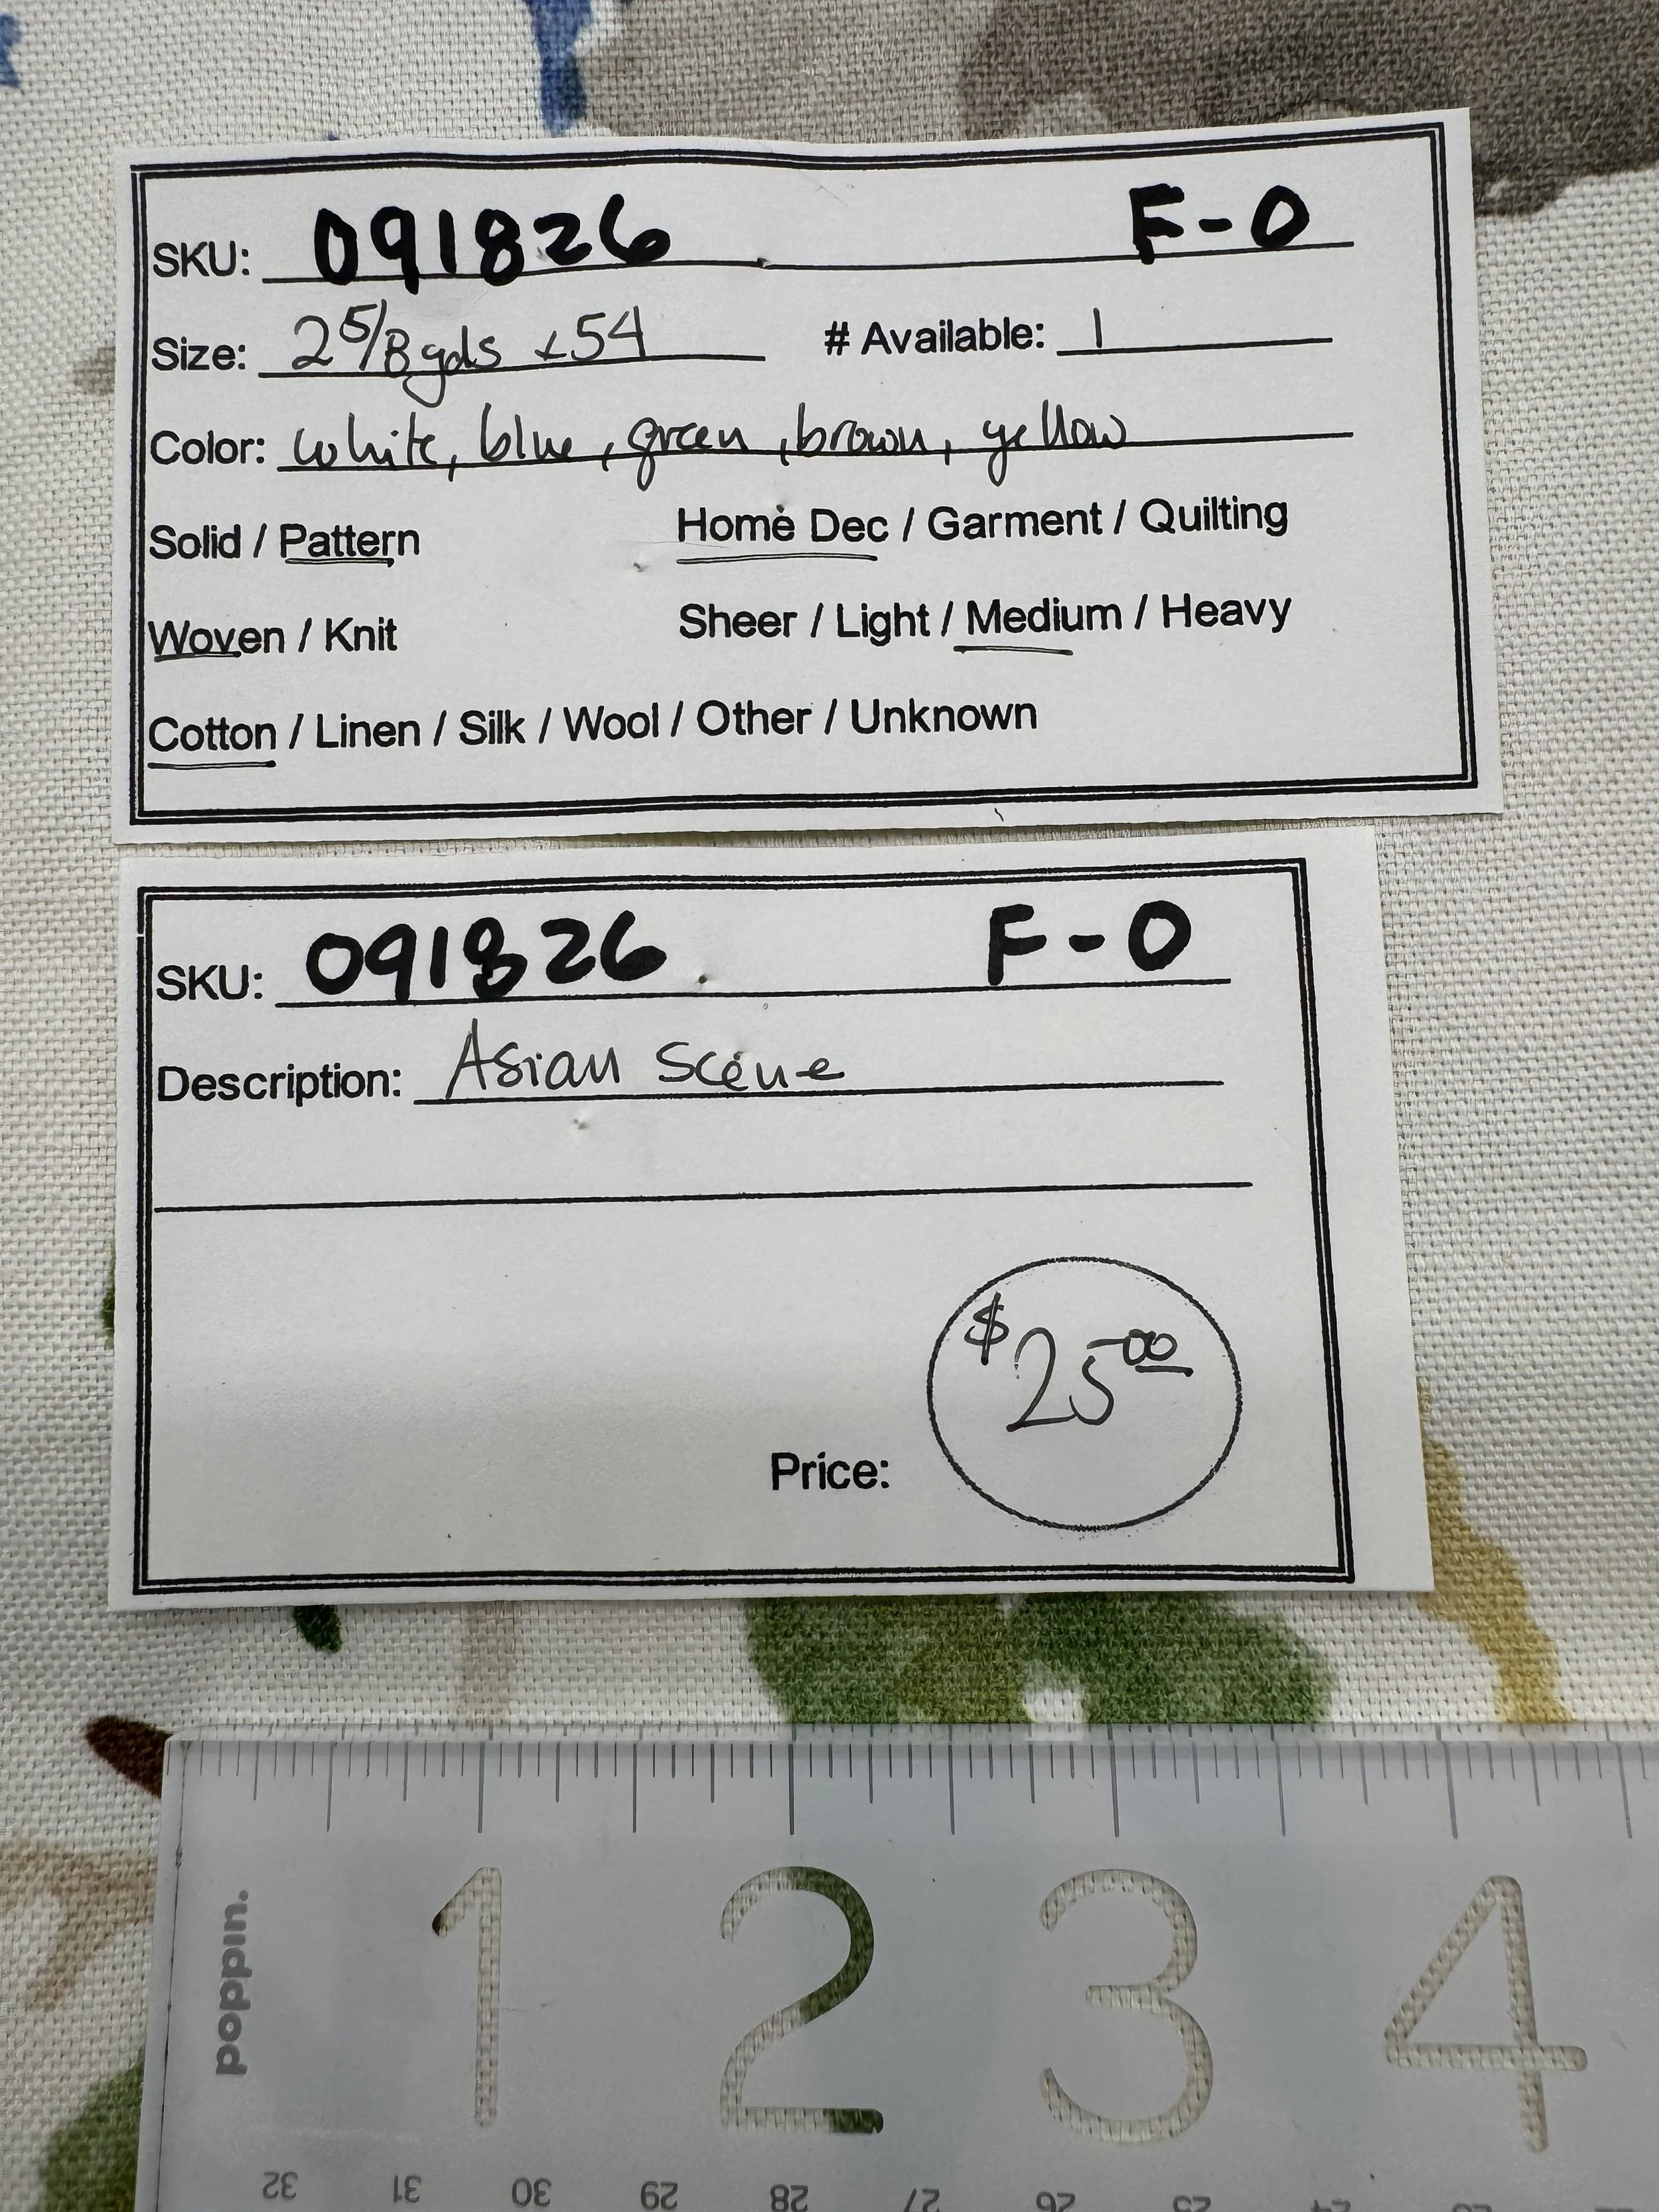 SKU: 091826 F-0
Size: 2 5/8 yds x54 # Available: 1
Color: white, blue, green, brown, yellow
Solid / Pattern Home Dec / Garment / Quilting
Woven / Knit Sheer / Light / Medium / Heavy
Cotton / Linen / Silk / Wool / Other / Unknown
SKU: 091826 F-0
Description: Asian Scene
$25.00
Price:
1 2 3 4
poppin.
32 31 30 29 28 27 26 25 24 23